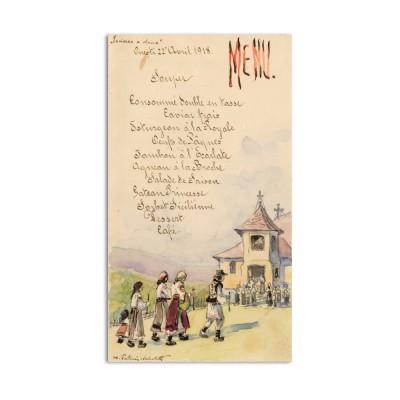 MENU.
22 Avril 1918.
Souper
Consommé double en tasse
Caviar frais
Esturgeon à la Royale
Oeufs de Pâques
Jambon à l'Ecarlate
Agneau à la Broche
Salade de Saison
Gateau Princesse
Sorbet Sicilienne
Dessert
Café